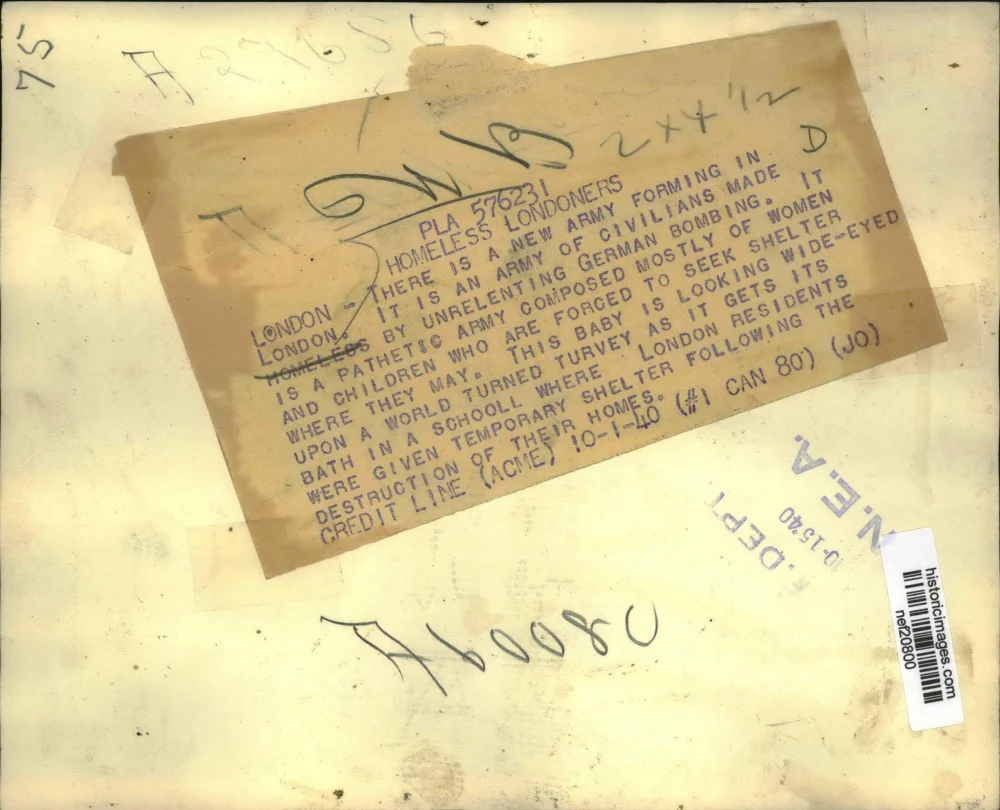 75
A 27656
GWB
2 x 4 1/2
D
PLA 576231
HOMELESS LONDONERS
LONDON - THERE IS A NEW ARMY FORMING IN
LONDON. IT IS AN ARMY OF CIVILIANS MADE
HOMELESS BY UNRELENTING GERMAN BOMBING. IT
IS A PATHETIC ARMY COMPOSED MOSTLY OF WOMEN
AND CHILDREN WHO ARE FORCED TO SEEK SHELTER
WHERE THEY MAY. THIS BABY IS LOOKING WIDE-EYED
UPON A WORLD TURNED TURVEY AS IT GETS ITS
BATH IN A SCHOOLL WHERE LONDON RESIDENTS
WERE GIVEN TEMPORARY SHELTER FOLLOWING THE
DESTRUCTION OF THEIR HOMES.
CREDIT LINE (ACME) 10-1-40 (#1 CAN 80') (JO)
N.E.A.
10-15-40
DEPT
historicimages.com
nef20800
A60080